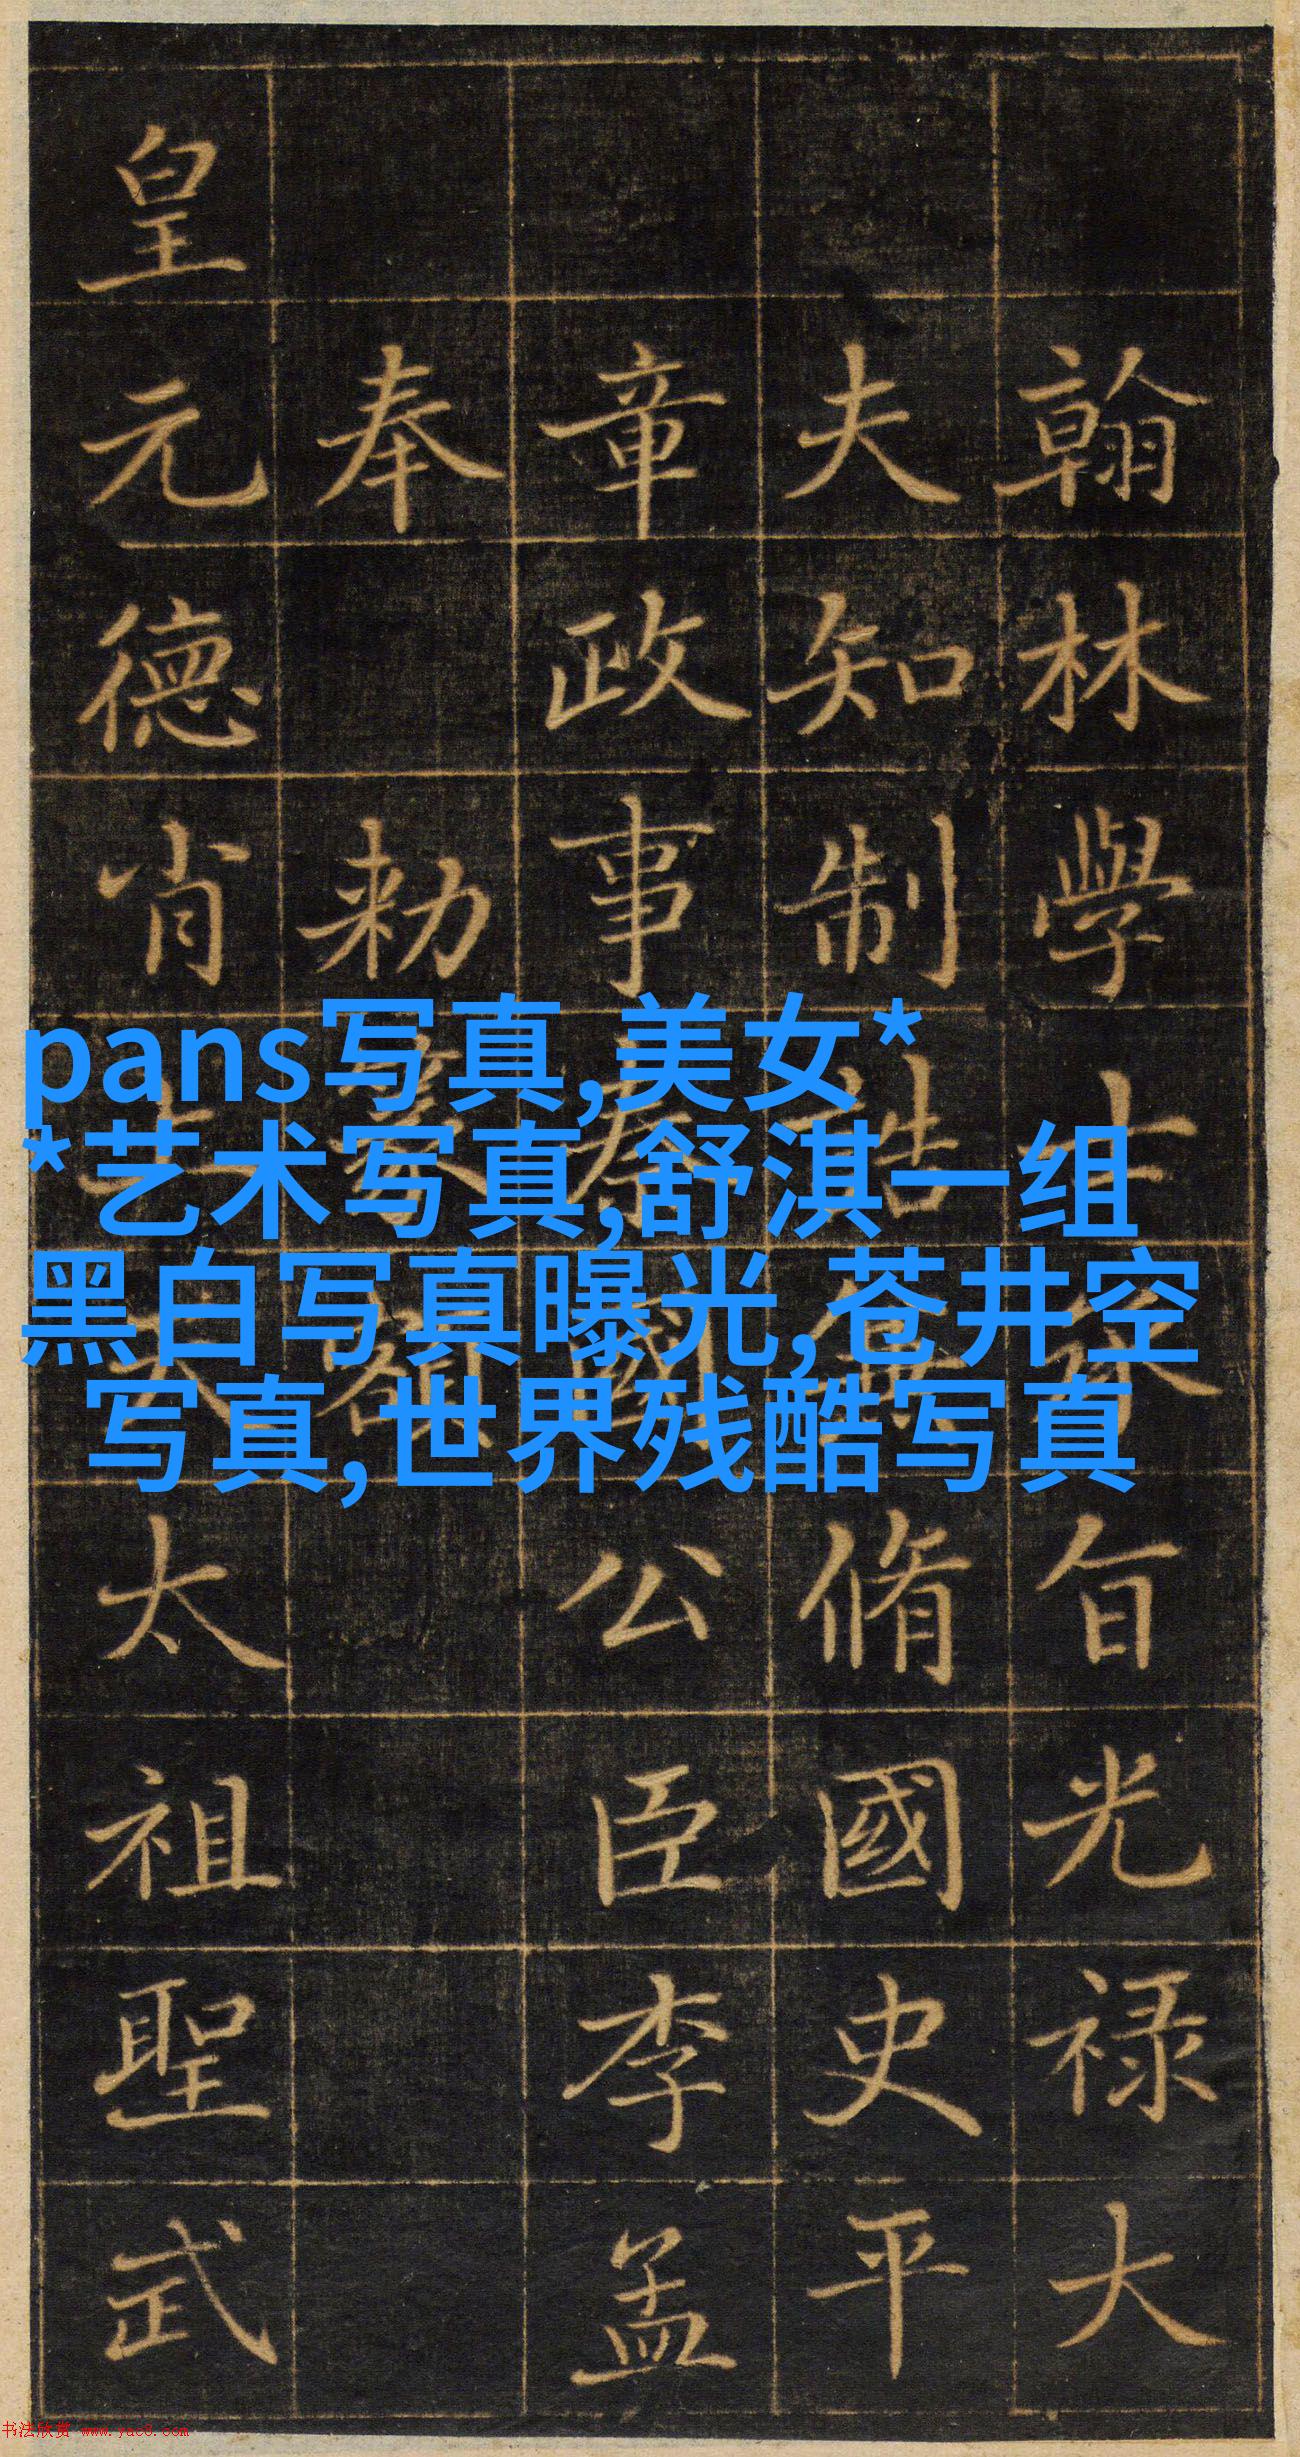 翰林學士承旨光禄大
夫知制誥兼脩國史平
章政事秦國公臣李孟
奉勑篆額
皇元德肖上天太祖聖武
pans写真,美女*
*艺术写真,舒淇一组
黑白写真曝光,苍井空
写真,世界残酷写真
书法欣赏 www.yac8.com